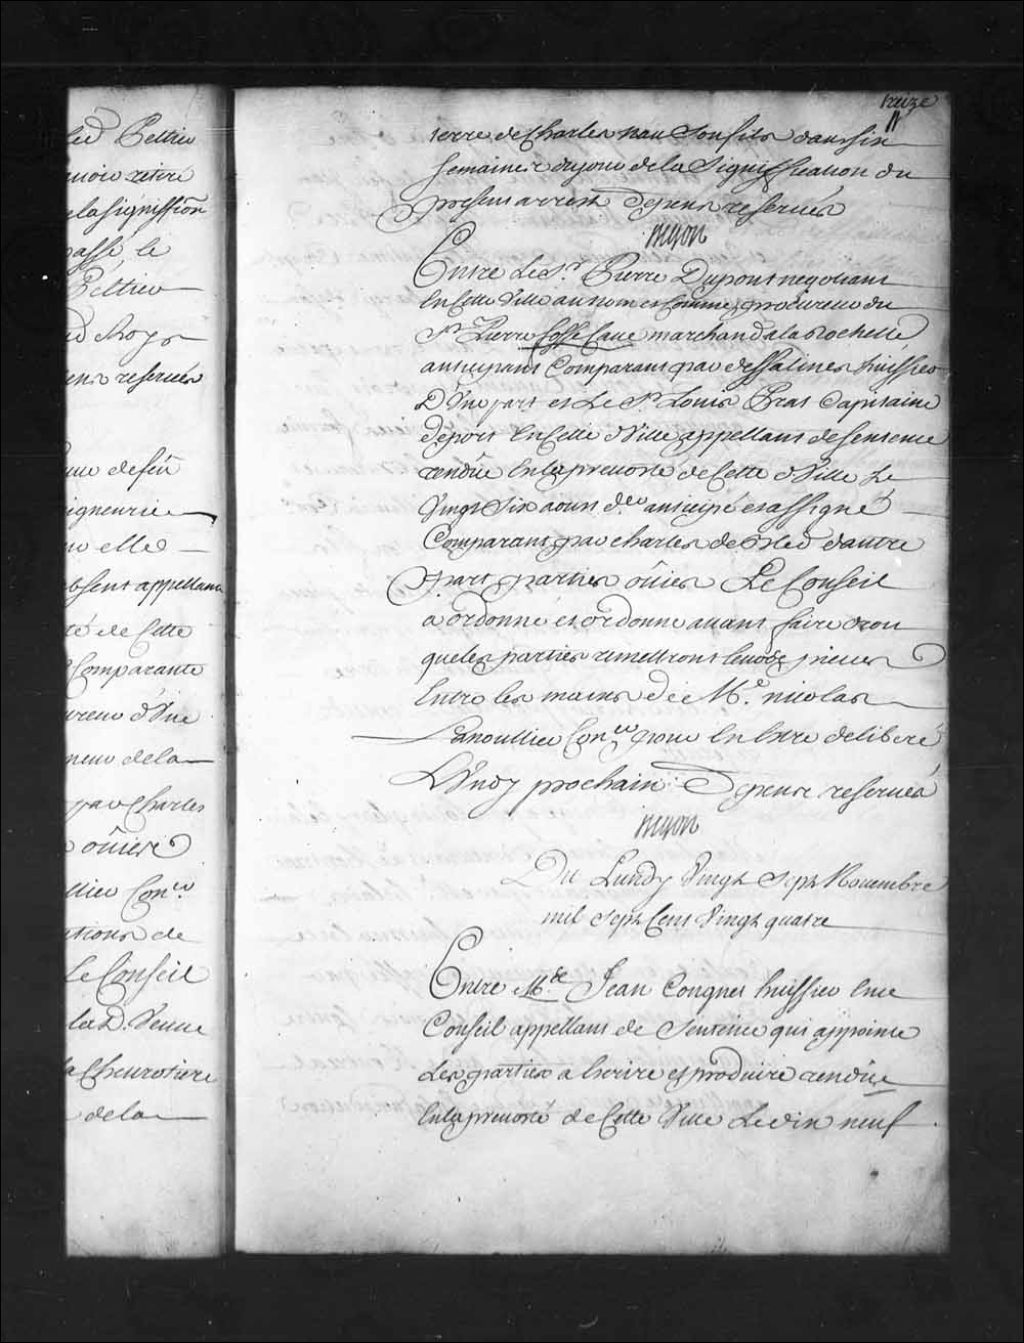 led Peltier
avoir retiré
la signiffion
passé, le
Peltier
Roy
dépens reservés
deffu
seigneurie
elle
absent appellant
té de Cette
Comparante
d'Une
neur dela
par Charles
oüies
Conser
de
Le Conseil
la D. Veuve
la Cheurotiere
dela
treize
terre de Charles nau Son fils dans six
semaines du jour de la Signiffication du
present arrest Depens reservés
Begon
Entre Le Sr. Pierre Dupont negotiant
En Cette Ville au nom et Comme procureur du
Sr. Pierre marchand a la Rochelle
anticipant Comparant par dessalines huissier
D'Une part et Le Sr. Louis Prat Capitaine
de port En Cette Ville appellant de sentence
rendüe En la prevosté de Cette Ville Le
Vingt Six aoust der. anticipé et assigné
Comparant par charles d'autre
part, parties oüies Le Conseil
a ordonné et ordonne avant faire droit
que les parties remettront leurs pieces
Entre les mains de Me. nicolas
Lanoullier Coner. pour En Estre deliberé
Lundy prochain Depens reservés
Begon
Du Lundy Vingt Sept Novembre
mil Sept Cent Vingt quatre
Entre Me. Jean Congnet huissier En ce
Conseil appellant de Sentence qui appointe
Les parties a Escrire et produire rendüe
En la prevosté de Cette Ville Le dix neuf